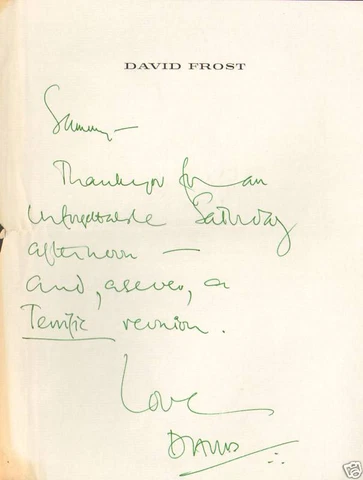 DAVID FROST
Sammy —
Thankyou for an
Unforgettable Saturday
afternoon —
and, as ever, a
Terrific reunion.
Love
DAVID